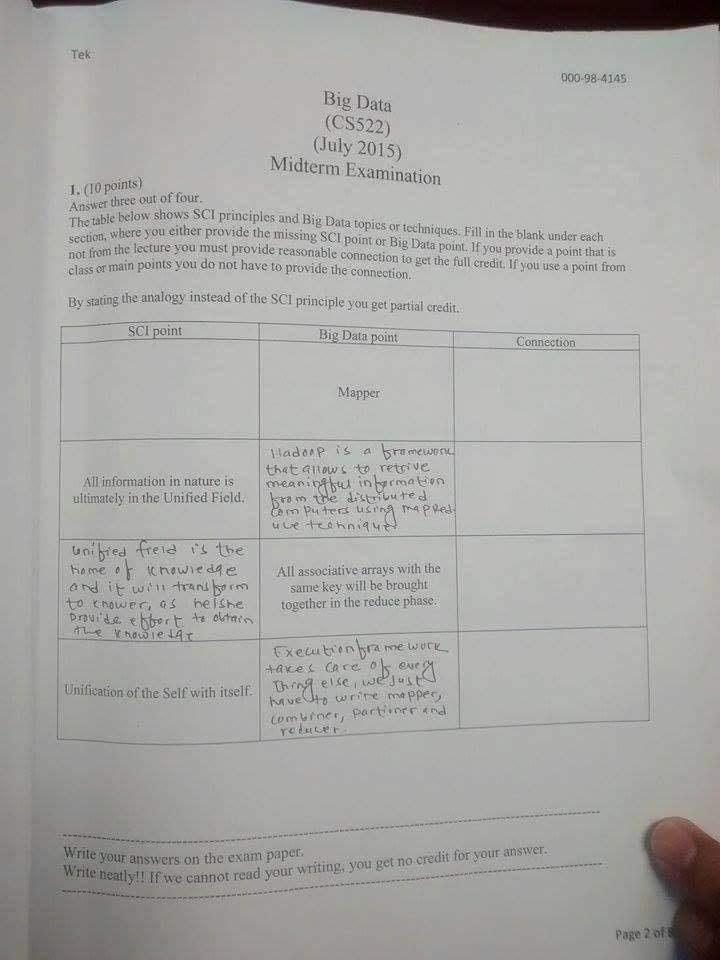 Tek
000-98-4145
Big Data
(CS522)
(July 2015)
Midterm Examination
1. (10 points)
Answer three out of four.
The table below shows SCI principles and Big Data topics or techniques. Fill in the blank under each
section, where you either provide the missing SCI point or Big Data point. If you provide a point that is
not from the lecture you must provide reasonable connection to get the full credit. If you use a point from
class or main points you do not have to provide the connection.
By stating the analogy instead of the SCI principle you get partial credit.
SCI point
Big Data point
Connection
Mapper
All information in nature is
ultimately in the Unified Field.
Hadoop is a framework
that allows to retrive
meaningful information
from the distributed
computers using mapRed-
uce technique
unified field is the
home of knowledge
and it will transform
to knower, as he/she
provide effort to obtain
the knowledge
All associative arrays with the
same key will be brought
together in the reduce phase.
Unification of the Self with itself.
Execution framework
takes care of every
thing else, we just
have to write mapper,
combiner, partioner and
reducer.
Write your answers on the exam paper.
Write neatly!! If we cannot read your writing, you get no credit for your answer.
Page 2 of 8